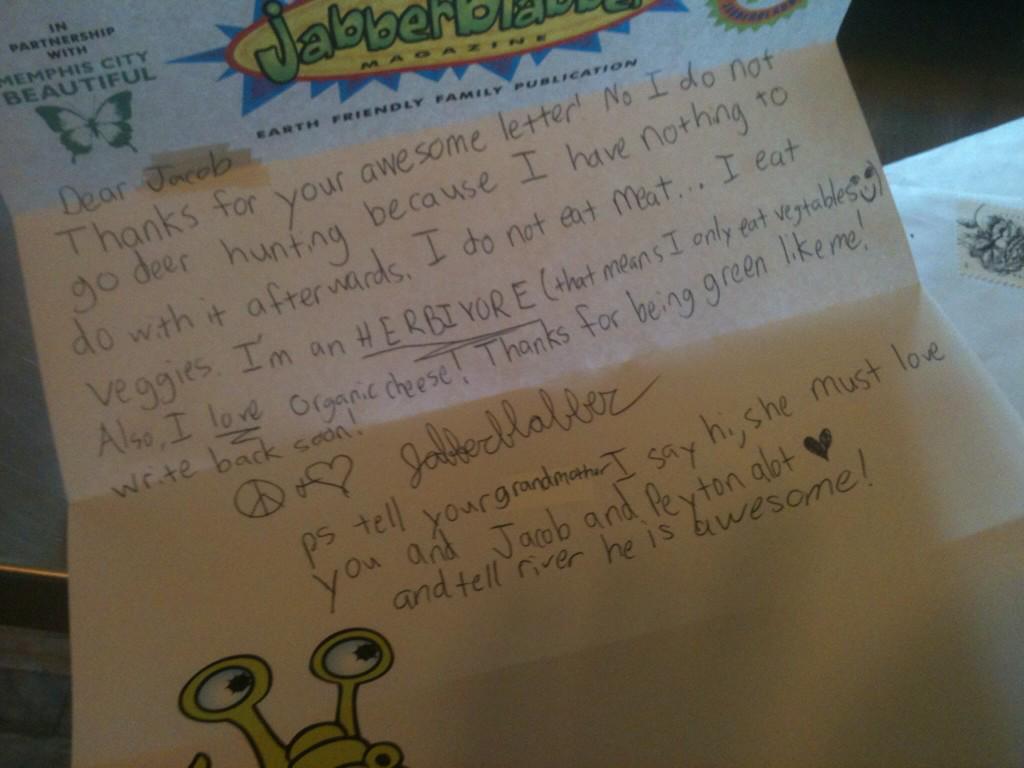 IN
PARTNERSHIP
WITH
MEMPHIS CITY
BEAUTIFUL
Jabberblabber
MAGAZINE
EARTH FRIENDLY FAMILY PUBLICATION
Dear Jacob
Thanks for your awesome letter! No I do not
go deer hunting because I have nothing to
do with it afterwards. I do not eat meat... I eat
veggies. I'm an HERBIVORE (that means I only eat vegtables)
Also, I love organic cheese! Thanks for being green like me!
write back soon!
Jabberblabber
ps tell your grandmother I say hi, she must love
you and Jacob and Peyton abt
and tell river he is awesome!